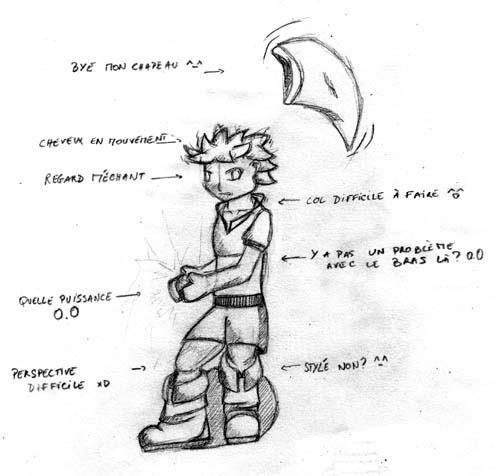 BYE MON CHAPEAU ^-^
CHEVEUX EN MOUVEMENT
REGARD MÉCHANT
COL DIFFICILE À FAIRE
Y A PAS UN PROBLÈME
AVEC LE BRAS LÀ? O.O
QUELLE PUISSANCE
O.O
PERSPECTIVE
DIFFICILE XD
STYLÉ NON? ^^